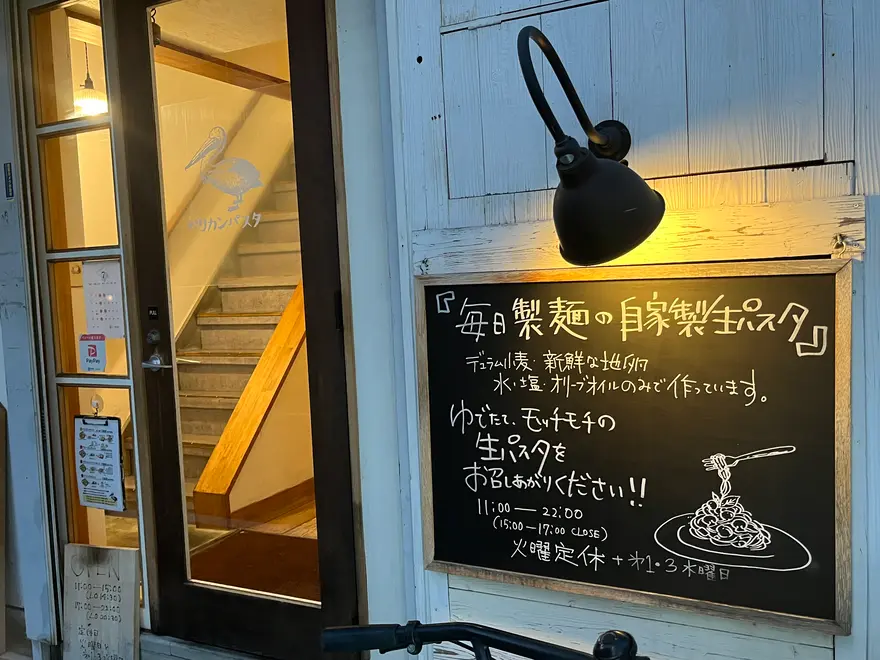 ペリカンパスタ
PULL
PayPay
『毎日製麺の自家製生パスタ』
デュラム小麦・新鮮な地卵
水・塩・オリーブオイルのみで作っています。
ゆでたて、モッチモチの
生パスタを
お召しあがりください!!
11:00―22:00
(15:00-17:00 CLOSE)
火曜定休+第1・3水曜日
OPEN
11:00―15:00
17:00―22:00
定休日
火曜日